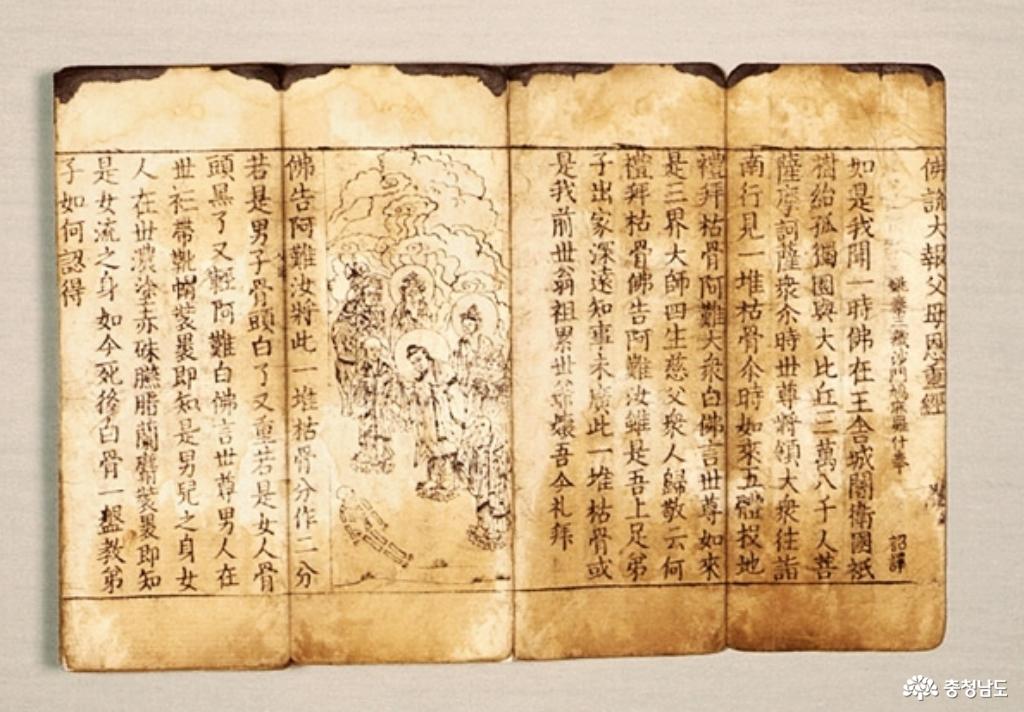 佛說大報父母恩重經
姚秦三藏沙門鳩摩羅什奉 詔譯
如是我聞一時佛在王舍城闍衛國祇
樹給孤獨園與大比丘三萬八千人菩
薩摩訶薩衆尒時世尊將領大衆往詣
南行見一堆枯骨尒時如來五體投地
禮拜枯骨阿難大衆白佛言世尊如來
是三界大師四生慈父衆人歸敬云何
禮拜枯骨佛告阿難汝雖是吾上足弟
子出家深遠知事未廣此一堆枯骨或
是我前世翁祖累世爺孃吾今礼拜
佛告阿難汝將此一堆枯骨分作二分
若是男子骨頭白了又重若是女人骨
頭黑了又輕阿難白佛言世尊男人在
世衫帶靴帽裝裹即知是男兒之身女
人在世濃塗赤硃臙脂蘭麝裝裹即知
是女流之身如今死後白骨一盤教弟
子如何認得
충청남도